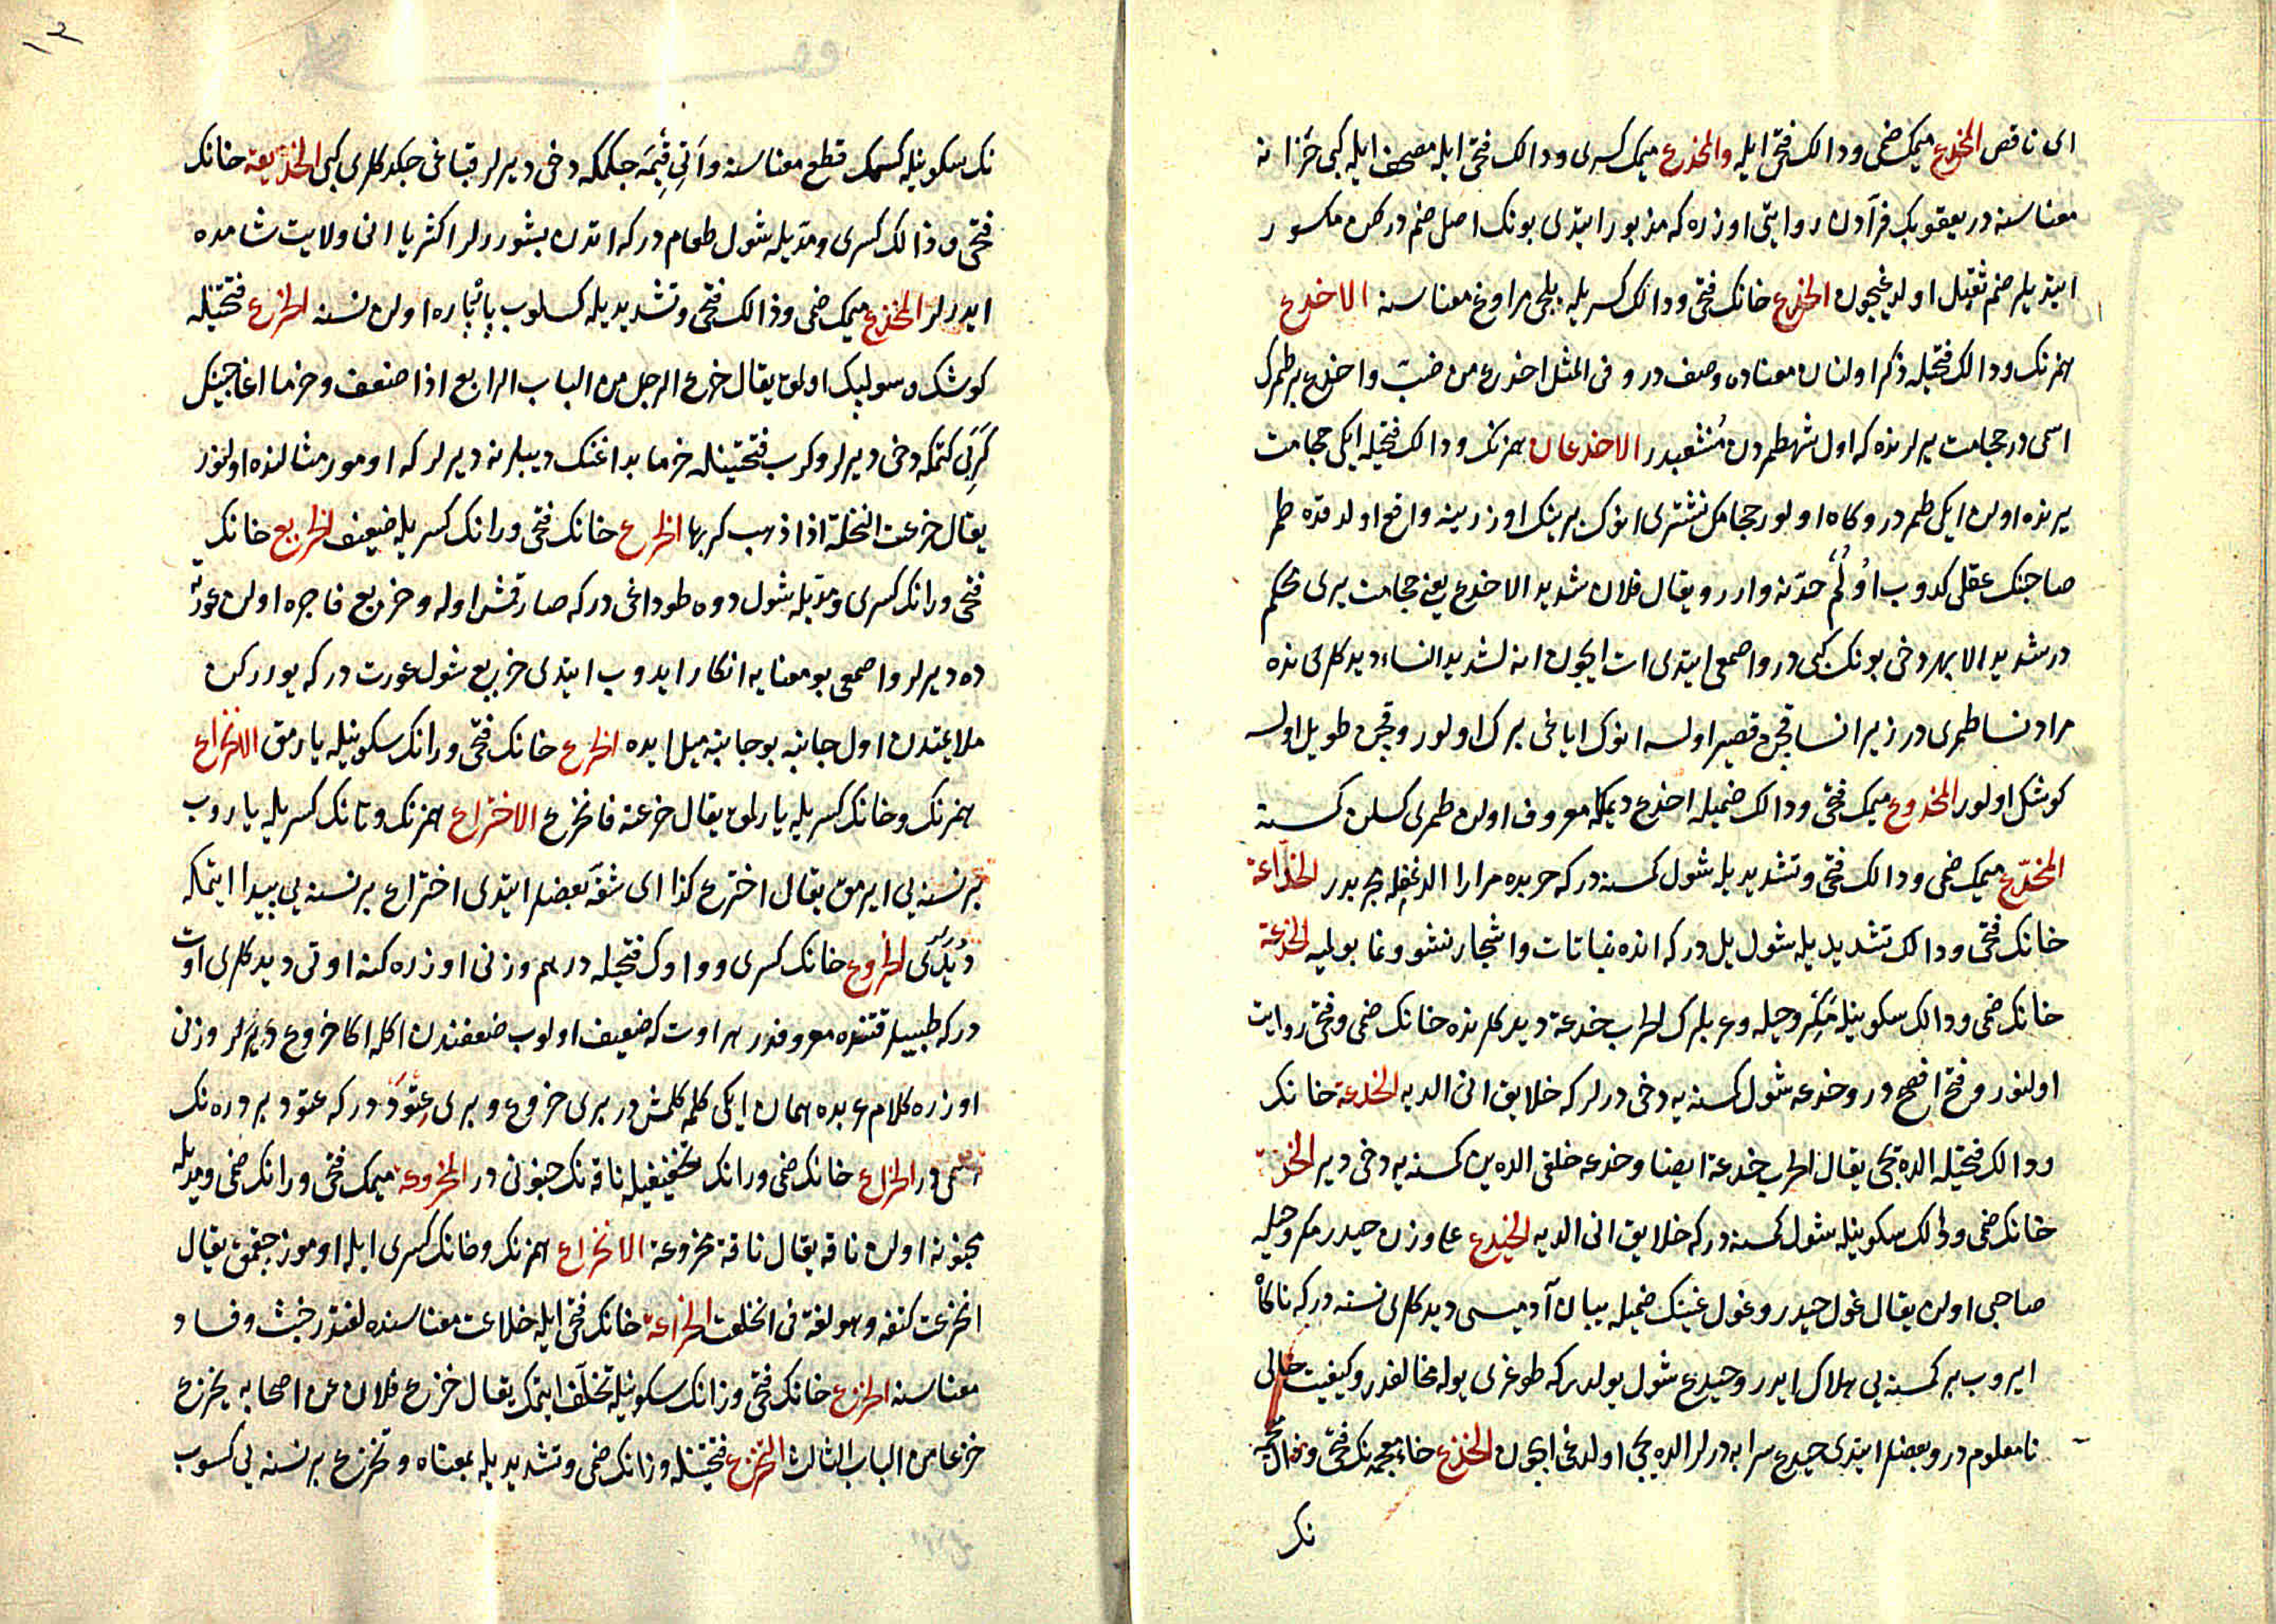 ای ناقص المخدع میمك ضمی و دالك فتحی ایله والمخدع میمك کسری و دالك فتحی ایله مصحف ایله کبی خزانه
معناسنه در یعقوبك فرآدن روایتی اوزره که مزبور ایتدی بونك اصلی ضم در لکن مکسور
ایتدیلر ضم ثقیل اولدیغیچون الخدع خانك فتحی و دالك کسریله یلمی مراوغ معناسنه الاخدع
همزنك و دالك فتحیله ذکر اولنان معناده وصف در و فی المثل اخدع من ضب و اخدع بر طمرك
اسمی در حجامت یرلرنده که اول شهطمردن منشعبدر الاخدعان همزنك و دالك فتحیله ایکی حجامت
یرنده اولن ایکی طمردر و کاه اولور حجامك نشتری انوك برینك اوزرینه واقع اولدقده طمر
صاحبنك عقلی کدوب اولم حدّنه وارر و یقال فلان شدید الاخدع یعنی حجامت یری محکم
در شدید الابهر دخی بونك کبی در و اصمعی ایتدی ات ایچون انه لشدید النساء دیدکلرنده
مراد نسا طمری در زیرا نسا قچن قصیر اولسه انوك ایاغی برك اولور و قچن طویل اولسه
کوشك اولور المخدوع میمك فتحی و دالك ضمیله اخدع دیمکله معروف اولن طمری کسلن کسنه
المخدّع میمك ضمی و دالك فتحی و تشدیدیله شول کمسنه در که حربده مرارا الدنمغله مجربدر الخدّاعة
خانك فتحی و دالك تشدیدیله شول یل در که انده نباتات و اشجار نشو و نما بولمیه الخدعة
خانك ضمی و دالك سکونیله مکر و حیله و عربلرك الحرب خدعة دیدکلرنده خانك ضمی و فتحی روایت
اولنور و فتح افصح در و خدعه شول کمسنه یه دخی درلر که خلایق انی الدیه الخدعة خانك
و دالك فتحیله الده یجی یقال الحرب خدعة ایضا و خدعه خلقی الدهین کمسنه یه دخی دیر الخدعة
خانك ضمی و دالك سکونیله شول کمسنه در که خلایق انی الدیه الخیدع علی وزن حیدر مکر و حیله
صاحبی اولن یقال غول خیدر و غول غینك ضمیله بیبان آدمیسی دیدکلری نسنه در که ناکاه
ایروب بر کمسنه یی هلاك ایدر و خیدع شول یولدر که طوغری یوله مخالفدر و کیفیت حالی
نامعلوم در و بعضلر ایتدی خیدع سرابه درلر الده یجی اولدیغی ایچون الخذع خاء معجمه نك فتحی و ذال معجمه
نك
نك سکونیله کسمك قطع معناسنه و اتی قیمه جكمکه دخی دیرلر قباغی جکدکلری کبی الخذیعة خانك
فتحی و ذالك کسری و مدّیله شول طعام در که اتدن بشوررلر اکثریا انی ولایت شامده
ایدرلر المخذع میمك ضمی و ذالك فتحی و تشدیدیله کسلوب پاره پاره اولن نسنه الخرع فتحتینله
کوشك و سولپك اولمق یقال خرع الرجل من الباب الرابع اذا ضعف و خرما اغاجینك
کربی کتمکه دخی دیرلر و کرب فتحتینله خرما بداغنك دیبلرنه دیرلر که اومور مثالنده اولنور
یقال خرعت النخلة اذا ذهب کربها الخرع خانك فتحی و رانك کسریله ضعیف الخریع خانك
فتحی و رانك کسری و مدّیله شول دوه طوداغی در که صارقمش اوله و خریع فاجره اولن عورته
ده دیرلر و اصمعی بو معنایه انکار ایدوب ایتدی خریع شول عورت در که یوررکن
ملایمتدن اول جانبه بو جانبه میل ایده الخرع خانك فتحی و رانك سکونیله یارمق الانخراع
همزنك و خانك کسریله یارلمق یقال خرعته فانخرع الاختراع همزنك و تانك کسریله یاروب
بر نسنه یی ایرمق یقال اخترع کذا ای شقّه بعضلر ایتدی اختراع بر نسنه یی پیدا ایتمکه
دیرلر الخروع خانك کسری و واوك فتحیله درهم وزنی اوزره کنه اوتی دیدکلری اوت
در که طبیبلر قتنده معروفدر هر اوت که ضعیف اولوب ضعفندن اکله اکا خروع دیرلر وزنی
اوزره کلام عربده همان ایکی کلمه کلمش در بری خروع و بری عتود در که عتود بر دره نك
اسمی در الخراع خانك ضمی و رانك تخفیفیله ناقه نك جنونی در المخروعة میمك فتحی و رانك ضمی و مدّیله
مجنونه اولن ناقه یقال ناقة مخروعة الانخراع همزنك و خانك کسری ایله اوموز چقمق یقال
انخرعت کتفه و هو لغة فی انخلعت الخراعة خانك فتحی ایله خلاعت معناسنده لغتدر خبث و فساد
معناسنه الخزع خانك فتحی و زانك سکونیله تخلّف ایتمك یقال خزع فلان عن اصحابه یخزع
خزعا من الباب الثالث التخزّع فتحتینله و زانك ضمی و تشدیدیله بمعناه و تخزع بر نسنه یی کسوب